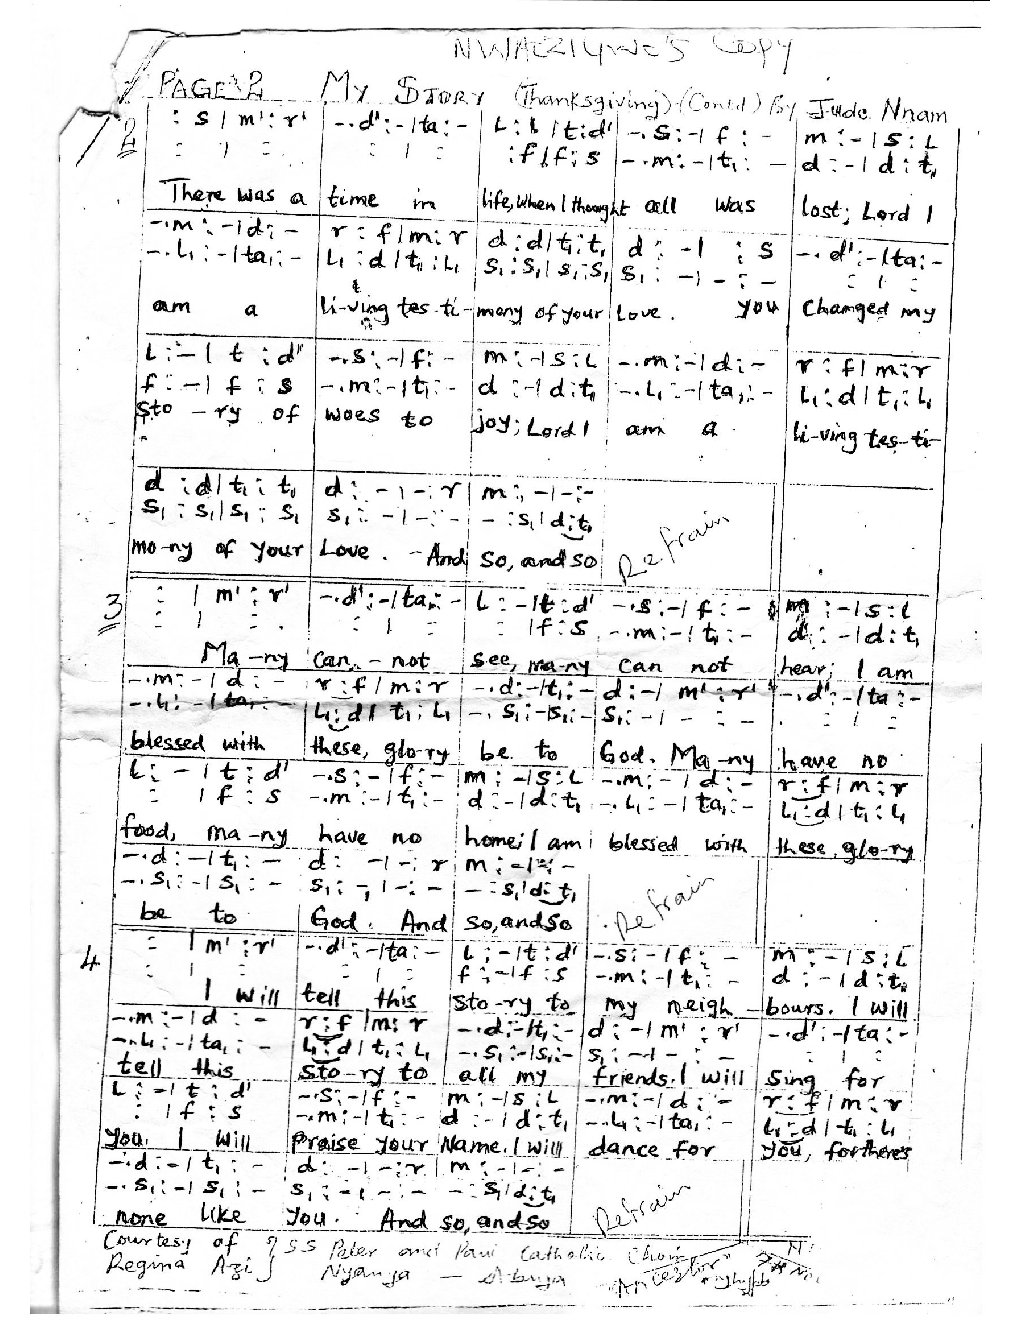 Copy
PAGE 2 MY STORY (Thanksgiving) (Contd) By Jude Nnam
2
: s | m' : r' -.d' : - | ta : - L : L | t : d' -.s : - | f : - m : - | s : L
: | : : | : : f | f : s -.m : - | t₁ : - d : - | d : t₁
There was a time in life, When I thought all was lost; Lord I
-.m : - | d : - r : f | m : r d : d | t₁ : t₁ d : - | : s -.d' : - | ta : -
-.L₁ : - | ta₁ : - L₁ : d | t₁ : L₁ s₁ : s₁ | s₁ : s₁ s₁ : - | - : - : | :
am a li-ving tes-ti- mony of your Love. You Changed my
L : - | t : d' -.s : - | f : - m : - | s : L -.m : - | d : - r : f | m : r
f : - | f : s -.m : - | t₁ : - d : - | d : t₁ -.L₁ : - | ta₁ : - L₁ : d | t₁ : L₁
sto-ry of woes to joy; Lord I am a li-ving tes-ti-
d : d | t₁ : t₁ d : - | - : r m : - | - : -
s₁ : s₁ | s₁ : s₁ s₁ : - | - : - - : s₁ | d : t₁
mo-ny of your Love. - And so, and so Refrain
3
: | m' : r' -.d' : - | ta : - L : - | t : d' -.s : - | f : - m : - | s : L
: | : : | : : | f : s -.m : - | t₁ : - d : - | d : t₁
Ma-ny can - not see, ma-ny can not hear; I am
-.m : - | d : - r : f | m : r -.d : - | t₁ : - d : - | m' : r' -.d' : - | ta : -
-.L₁ : - | ta₁ : - L₁ : d | t₁ : L₁ -.s₁ : - | s₁ : - s₁ : - | - : - : | :
blessed with these, glo-ry be to God. Ma-ny have no
L : - | t : d' -.s : - | f : - m : - | s : L -.m : - | d : - r : f | m : r
: | f : s -.m : - | t₁ : - d : - | d : t₁ -.L₁ : - | ta₁ : - L₁ : d | t₁ : L₁
food, ma-ny have no home; I am blessed with these, glo-ry
-.d : - | t₁ : - d : - | - : r m : - | - : -
-.s₁ : - | s₁ : - s₁ : - | - : - - : s₁ | d : t₁
be to God. And so, and so Refrain
4
: | m' : r' -.d' : - | ta : - L : - | t : d' -.s : - | f : - m : - | s : L
: | : : | : f : - | f : s -.m : - | t₁ : - d : - | d : t₁
I will tell this sto-ry to my neigh-bours. I will
-.m : - | d : - r : f | m : r -.d : - | t₁ : - d : - | m' : r' -.d' : - | ta : -
-.L₁ : - | ta₁ : - L₁ : d | t₁ : L₁ -.s₁ : - | s₁ : - s₁ : - | - : - : | :
tell this sto-ry to all my friends. I will sing for
L : - | t : d' -.s : - | f : - m : - | s : L -.m : - | d : - r : f | m : r
: | f : s -.m : - | t₁ : - d : - | d : t₁ -.L₁ : - | ta₁ : - L₁ : d | t₁ : L₁
you. I will praise your Name. I will dance for you, for there's
-.d : - | t₁ : - d : - | - : r m : - | - : -
-.s₁ : - | s₁ : - s₁ : - | - : - - : s₁ | d : t₁
none like you. And so, and so Refrain
Courtesy of SS Peter and Paul Catholic Choir
Regina Azi Nyanya - Abuja "Ancestor"